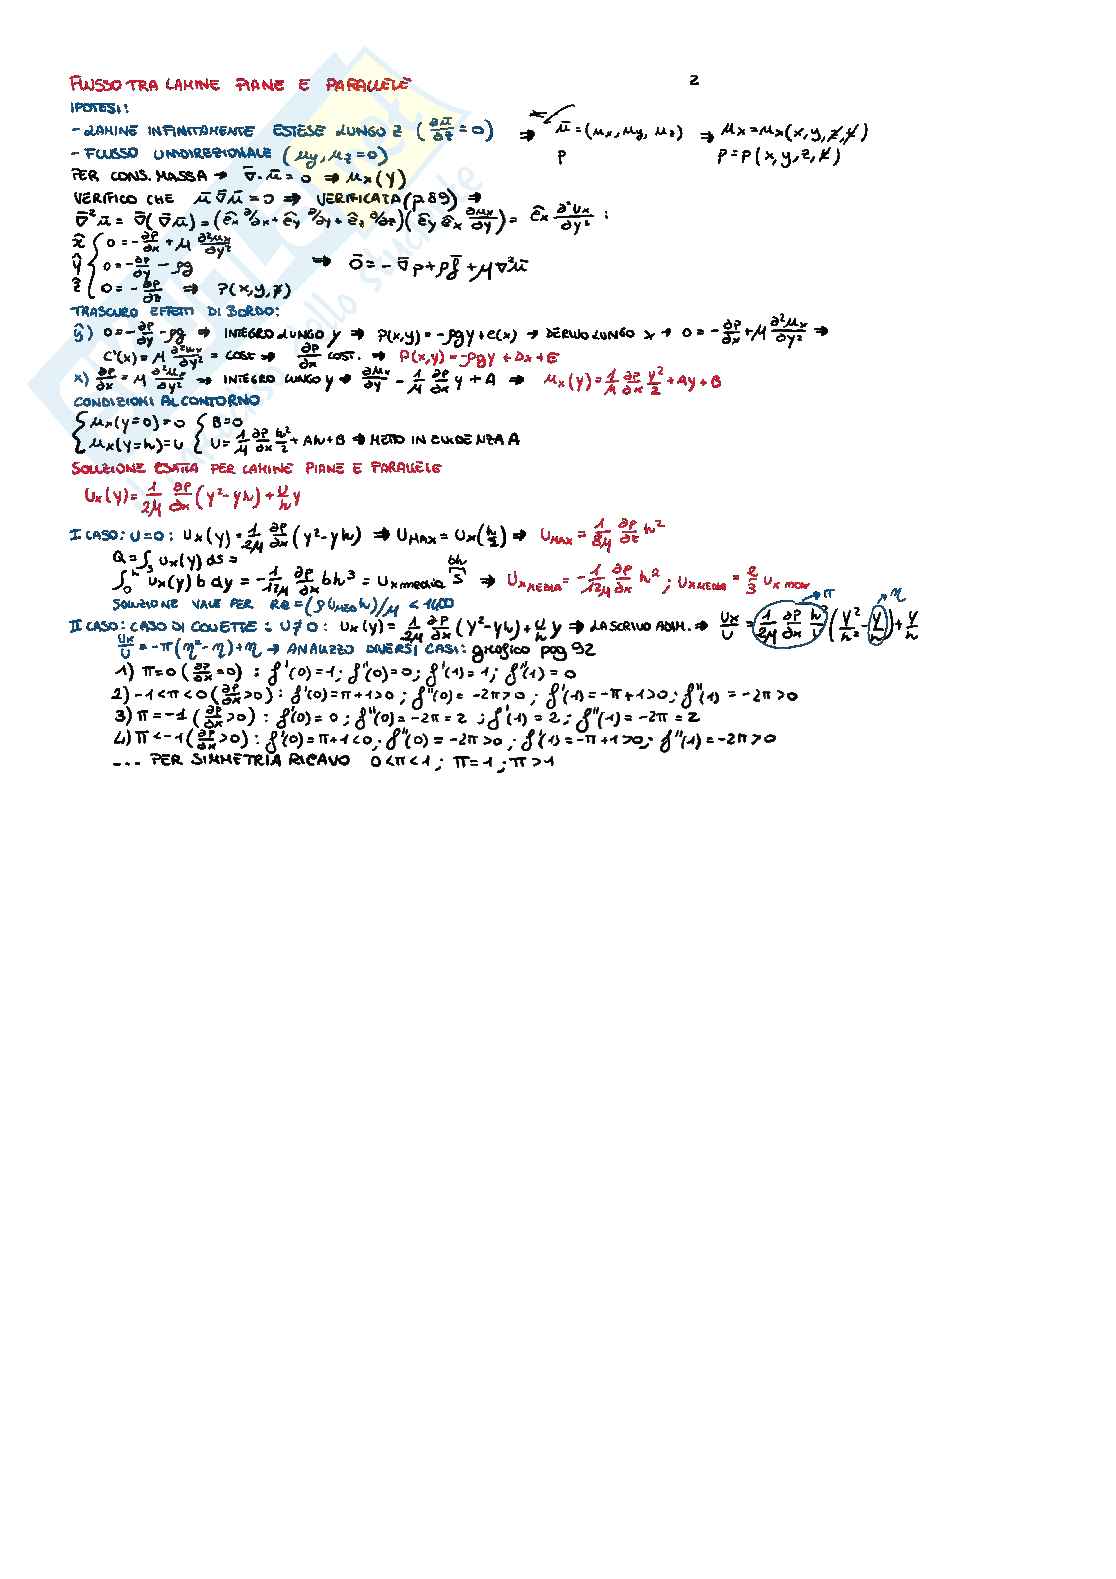 FLUSSO TRA LAMINE PIANE E PARALLELE 2
IPOTESI:
- LAMINE INFINITAMENTE ESTESE LUNGO Z (∂ū/∂z = 0) ⇒ ū = (ux, uy, uz) ⇒ ux = ux(x, y, z, t)
- FLUSSO UNIDIREZIONALE (uy, uz = 0) P P = P(x, y, z, t)
PER CONS. MASSA → ∇̄·ū = 0 ⇒ ux(y)
VERIFICO CHE ū∇̄ū = 0 ⇒ VERIFICATA (p.89) ⇒
∇̄²ū = ∇̄(∇̄ū) = (êx ∂/∂x + êy ∂/∂y + êz ∂/∂z)(êy êx ∂ux/∂y) = êx ∂²ux/∂y² ;
x̂ { 0 = -∂P/∂x + μ ∂²ux/∂y²
ŷ { 0 = -∂P/∂y - ρg ⇒ 0̄ = -∇̄p + ρḡ + μ∇²ū
ẑ { 0 = -∂P/∂z ⇒ P(x, y, z)
TRASCURO EFFETTI DI BORDO:
ŷ) 0 = -∂P/∂y - ρg ⇒ INTEGRO LUNGO y ⇒ P(x,y) = -ρgy + C(x) → DERIVO LUNGO x → 0 = -∂P/∂x + μ ∂²ux/∂y² ⇒
C'(x) = μ ∂²ux/∂y² = COST ⇒ ∂P/∂x COST. ⇒ P(x,y) = -ρgy + Dx + E
x) ∂P/∂x = μ ∂²ux/∂y² ⇒ INTEGRO LUNGO y ⇒ ∂ux/∂y - 1/μ ∂P/∂x y + A ⇒ ux(y) = 1/μ ∂P/∂x y²/2 + Ay + B
CONDIZIONI AL CONTORNO
{ ux(y=0) = 0 { B = 0
{ ux(y=h) = U { U = 1/μ ∂P/∂x h²/2 + Ah + B ⇒ METTO IN EVIDENZA A
SOLUZIONE ESATTA PER LAMINE PIANE E PARALLELE
Ux(y) = 1/2μ ∂P/∂x (y² - yh) + U/h y
I CASO: U = 0 : Ux(y) = 1/2μ ∂P/∂x (y² - yh) ⇒ UMAX = Ux(h/2) ⇒ UMAX = 1/8μ ∂P/∂z h²
Q = ∫s Ux(y) ds =
∫₀ʰ Ux(y) b dy = -1/12μ ∂P/∂x bh³ = Ux media S bh ⇒ UxMEDIA = -1/12μ ∂P/∂x h² ; UxMEDIA = 2/3 Ux max
SOLUZIONE VALE PER Re = (ρ UMED h)/μ < 1400
II CASO: CASO DI COUETTE : U ≠ 0 : Ux(y) = 1/2μ ∂P/∂x (y² - yh) + U/h y ⇒ LA SCRIVO ADIM. ⇒ Ux/U = 1/2μ ∂P/∂x h²/U (y²/h² - y/h) + y/h π η
Ux/U = -π(η² - η) + η → ANALIZZO DIVERSI CASI: grafico pag 92
1) π = 0 (∂P/∂x = 0) : f'(0) = 1 ; f''(0) = 0 ; f'(1) = 1 ; f''(1) = 0
2) -1 < π < 0 (∂P/∂x > 0) : f'(0) = π + 1 > 0 ; f''(0) = -2π > 0 ; f'(1) = -π + 1 > 0 ; f''(1) = -2π > 0
3) π = -1 (∂P/∂x > 0) : f'(0) = 0 ; f''(0) = -2π = 2 ; f'(1) = 2 ; f''(1) = -2π = 2
4) π < -1 (∂P/∂x > 0) : f'(0) = π + 1 < 0 ; f''(0) = -2π > 0 ; f'(1) = -π + 1 > 0 ; f''(1) = -2π > 0
... PER SIMMETRIA RICAVO 0 < π < 1 ; π = 1 ; π > 1